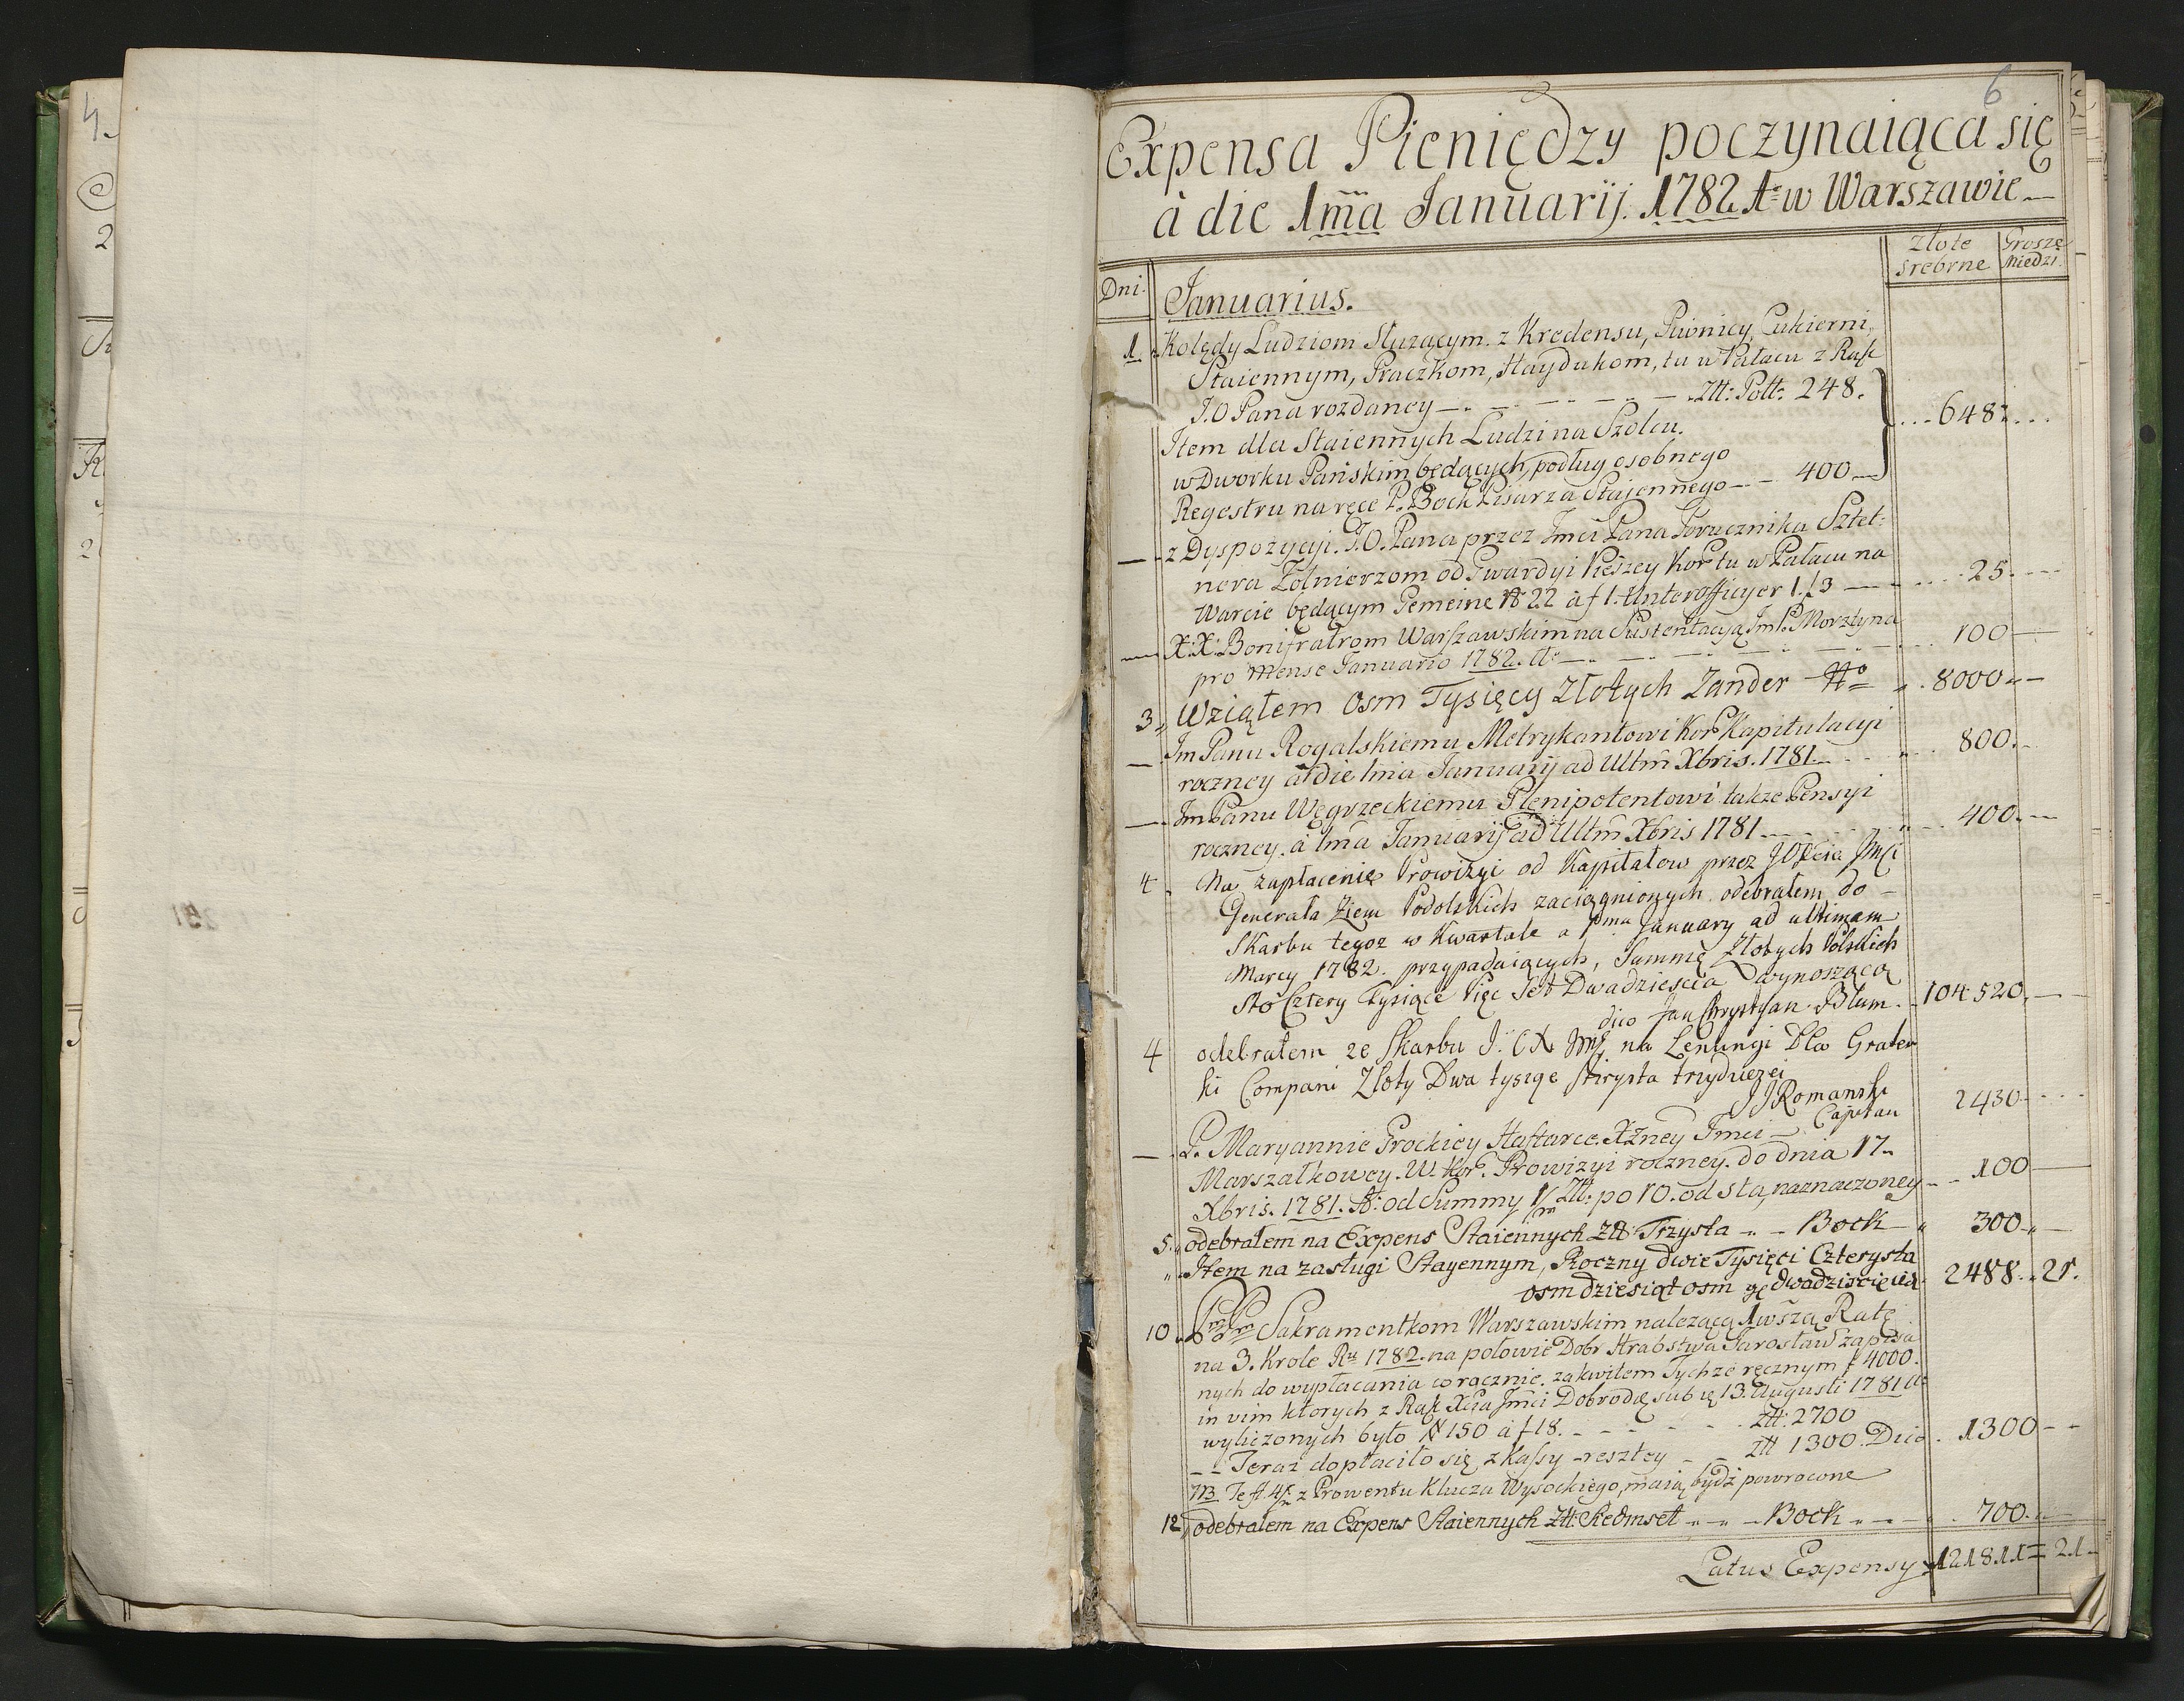 6
Expensa Pieniędzy poczynaiąca się
à die 1ma Januarij. 1782 Ao w Warszawie
Dni.
Januarius.
Złote srebrne
Grosze Miedzi.
1. Kolędy Ludziom Służącym. z Kredensu, Piwnicy, Cukierni,
Staiennym, Praczkom, Haydukom, tu w Pałacu z Rąk
J.O Pana rozdaney Złł: Poll: 248.
Item dla Staiennych Ludzi na Szolcu.
w Dworku Pańskim będących, podług osobnego
Regestru na ręce P. Bock Pisarza Stajennego 400
648
z Dyspozycji. J.O. Pana przez Jmci Pana Porucznika Sztet-
nera Żołnierzom od Gwardyi Pieszey Kor. tu w Pałacu na
Warcie będącym Gemeine No 22 à f 1. Unterofficyer 1. f 3 25
X: X: Bonifratrom Warszawskim na Sustentacją Jm P. Morztyna
pro Mense Januario 1782. Ao 100
3 Wziąłem Osm Tysięcy Złotych Zander 8000
Jm Panu Rogalskiemu Metrykantowi Kor. Kapitulacyi
roczney à die 1ma Januarij ad Ultm Xbris. 1781 800
Jm Panu Węgrzeckiemu Plenipotentowi także Pensyi
roczney. à 1ma Januarij ad Ultm Xbris 1781 400
4 Na zapłacenie Prowizyi od Kapitałow przez JOXcia Jmci
Generała Ziem Podolskich zaciągnionych odebrałem do
Skarbu tegoz w Kwartale a 1ma January ad ultimam
Marcy 1782. przypadaiących, Summę Złotych Polskich
Sto Cztery Tysiące Pięć Set Dwadzieścia wynoszącą
dico Jan Chrystyan Blum. 104.520
4 odebrałem ze Skarbu J. O X Jmć na Lenungi Dla Graten
ki Compani Złoty Dwa tysiąe sterysta trzyduiezei
JJRomanski
Capitan
2430
P. Maryannie Grockiey Haftarce. XZney Jmci
Marszałkowey. W. Kor. Prowizyi roczney. do dnia 17.
Xbris. 1781. Ao: od Summy 1/m Złł: po 10. od sta, naznaczoney 100
5. odebrałem na Expens Staiennych Złł: Trzysta Bock 300
Item na zasługi Stayennym, Roczny dwie Tysięci Czterysta
osmdziesiąt osm gę dwadzieścieia 2488. 21.
10. Sakramentkom Warszawskim nalezącą 1wszą Ratę
na 3. Krole Ru 1782. na połowie Dobr Hrabstwa Jarosław zapisa
nych do wypłacania corącznie. za kwitem Tychze ręcznym f 4000.
in vim ktorych z Rąk Xcia Jmci Dobrodę sub ię 13. Augusti 1781 Ao
wyliczonych było # 150 à f 18. Złł: 2700
Teraz dopłaciło się z Kassy resztey Złł 1300. Dico 1300
NB. Te fl. 4/m z Prowentu Klucza Wysockiego, maią bydź powrocone
12. odebrałem na Expens Staiennych Złł: Siedmset Bock 700
Latus Expensy 121811 = 21